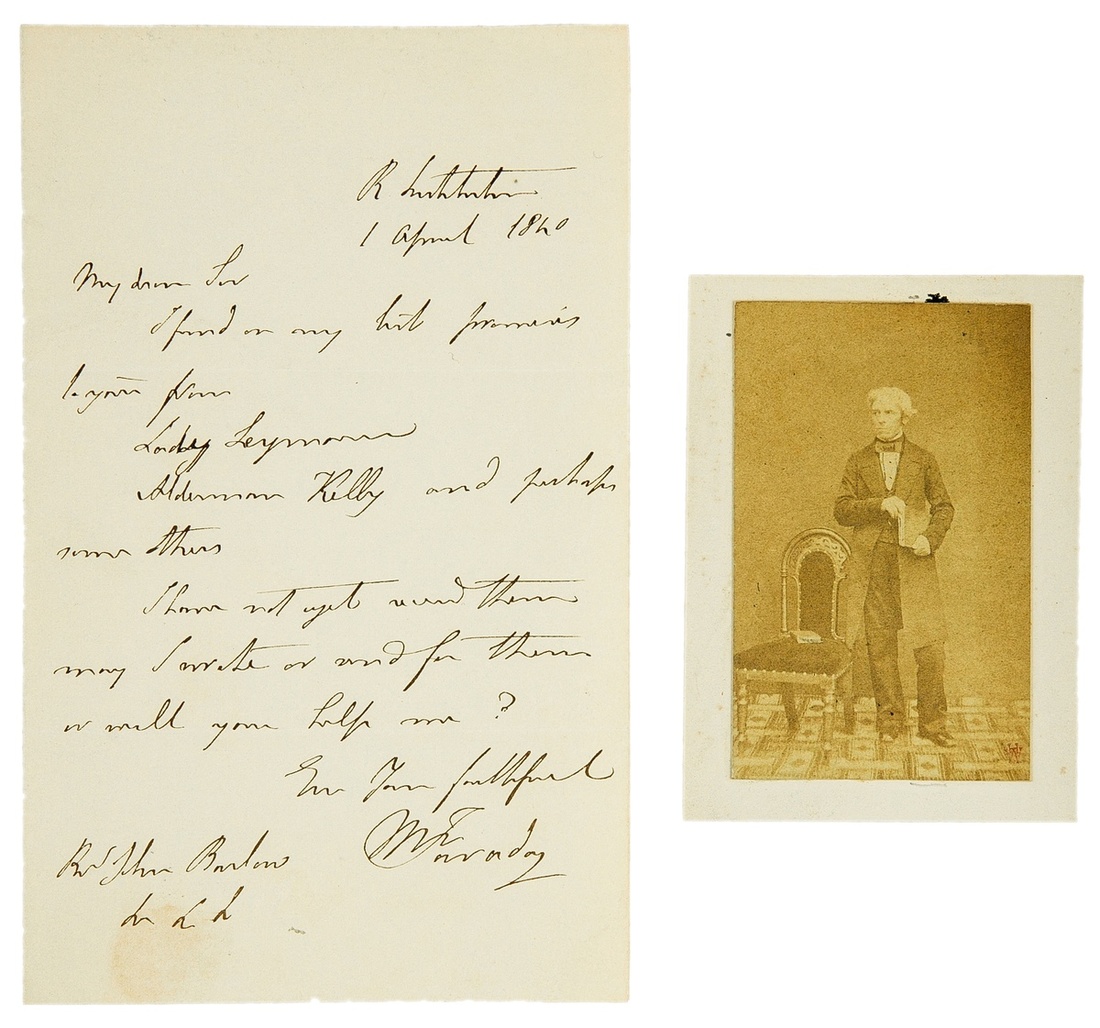 R Institution
1 April 1840
My dear Sir
I find on my list promises
to you from
Lady Seymour
Alderman Kelly and perhaps
some others
I have not yet recvd them
may I write or send for them
or will you help me ?
Ever Your faithful
M Faraday
Revd John Barlow
&c &c &c